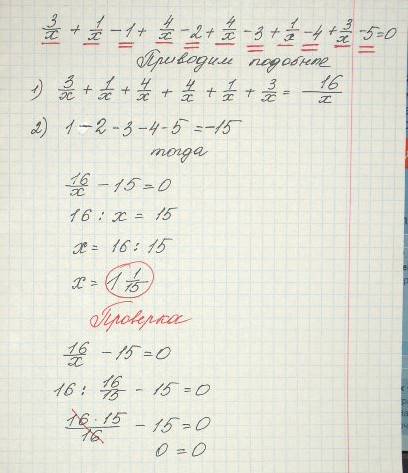 3/x + 1/x - 1 + 4/x - 2 + 4/x - 3 + 1/x - 4 + 3/x - 5 = 0
Приводим подобные
1) 3/x + 1/x + 4/x + 4/x + 1/x + 3/x = 16/x
2) 1 - 2 - 3 - 4 - 5 = -15
тогда
16/x - 15 = 0
16 : x = 15
x = 16 : 15
x = 1 1/15
Проверка
16/x - 15 = 0
16 : 16/15 - 15 = 0
16 · 15/16 - 15 = 0
0 = 0